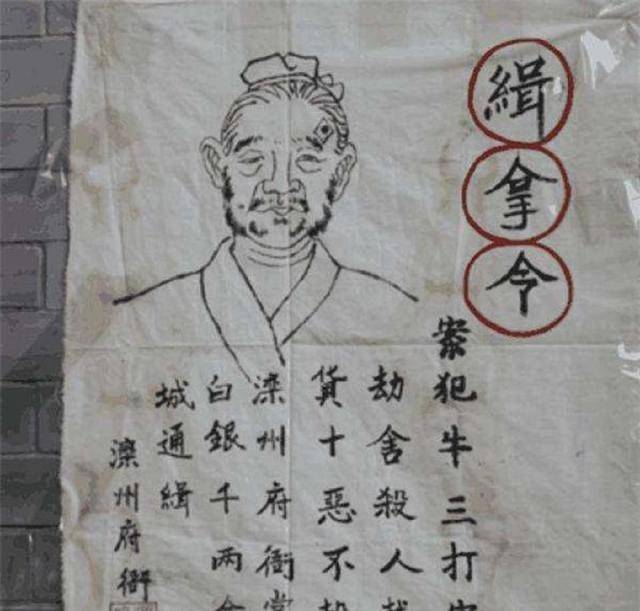 緝拿令
案犯牛三打
劫舍殺人
貨十惡不
滦州府衙
白銀千两
城通緝
滦州府衙